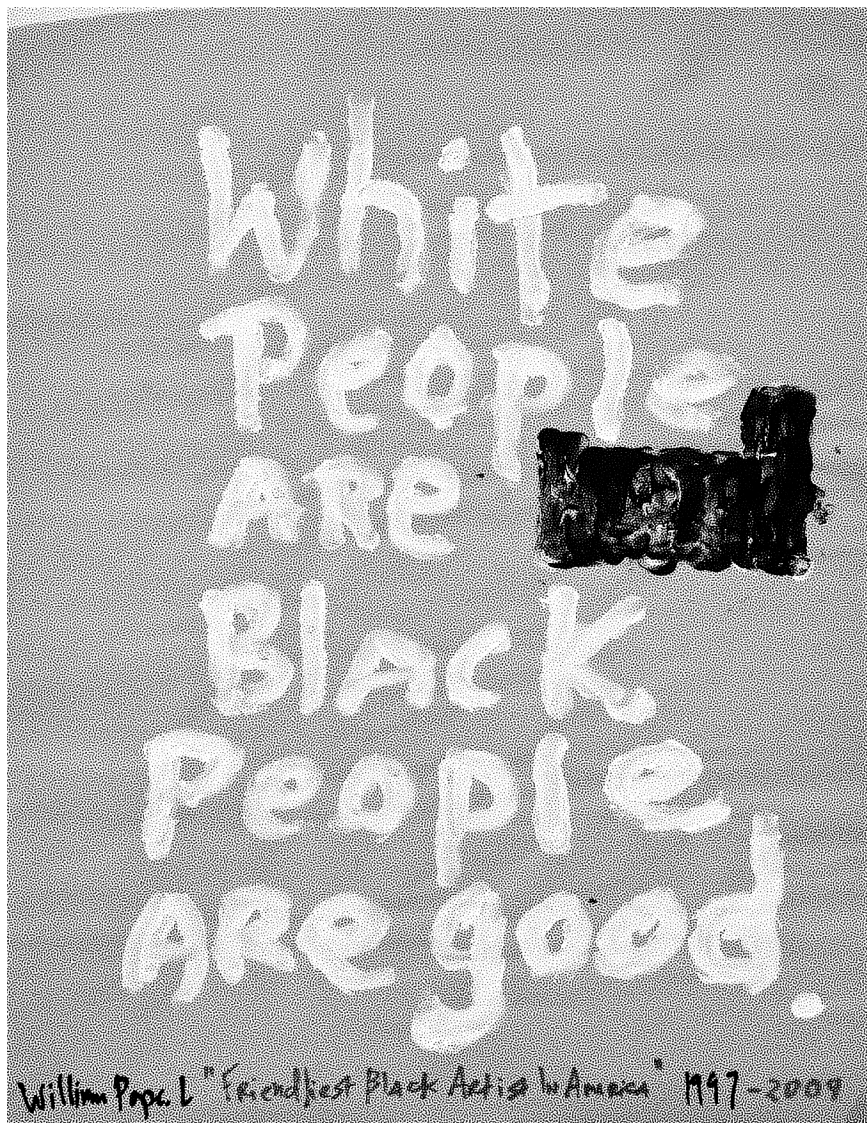 White
People
ARe
Black
People
ARe good.
William Pope. L "Friendliest Black Artist In America" 1997-2009